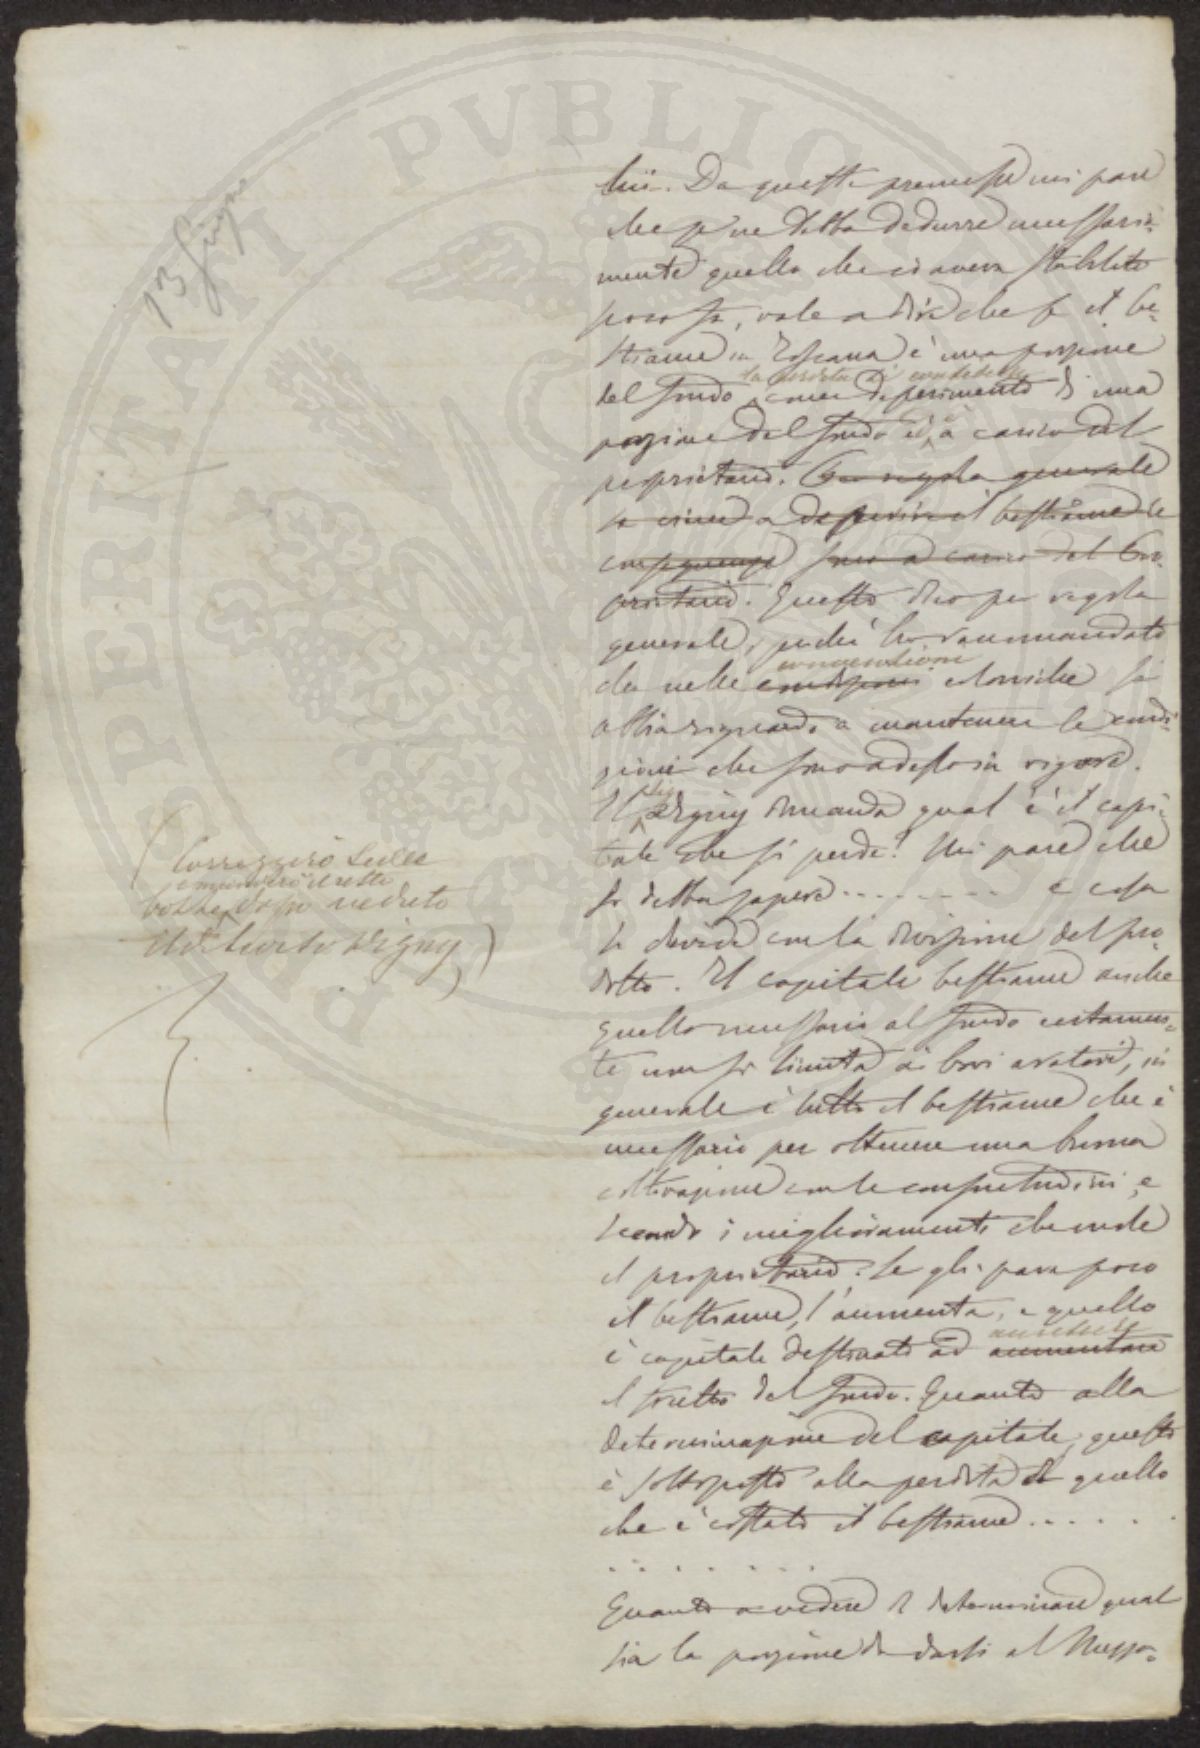 13 Giugno
lui. Da queste premesse mi pare
che se ne debba dedurre necessaria-
mente quello che io aveva stabilito
poco fa, vale a dire che se il be-
stiame in Toscana è una porzione
la perdita di
del fondo, come deperimento di una
porzione del fondo è a carico del
proprietario. Per regola generale
se viene a deperire il bestiame le
conseguenze sono a carico del Pro-
prietario. Questo dico per regola
generale, perché ho raccomandato
convenzioni
che nelle condizioni coloniche si
abbia riguardo a mantenere le condi-
zioni che sono adesso in vigore.
Il Digny domanda qual è il capi-
tale che si perde? Mi pare che
si debba sapere .......... e cosa
si divide con la divisione del pro-
dotto. Il capitale bestiame anche
quello necessario al fondo certamen-
te non si limita ai bovi aratori, in
generale è tutto il bestiame che è
necessario per ottenere una buona
coltivazione con le consuetudini e
secondo i miglioramenti che vuole
il proprietario. Se gli pare poco
il bestiame, l'aumenta, e quello
accrescere
è capitale destinato ad aumentare
il frutto del fondo. Quanto alla
determinazione del capitale, questo
è sottoposto alla perdita di quello
che è costato il bestiame ......
........
Quanto a vedere e determinare qual
sia la porzione da darsi al Mezza-
(Correggerò
dopo veduto
Digny)